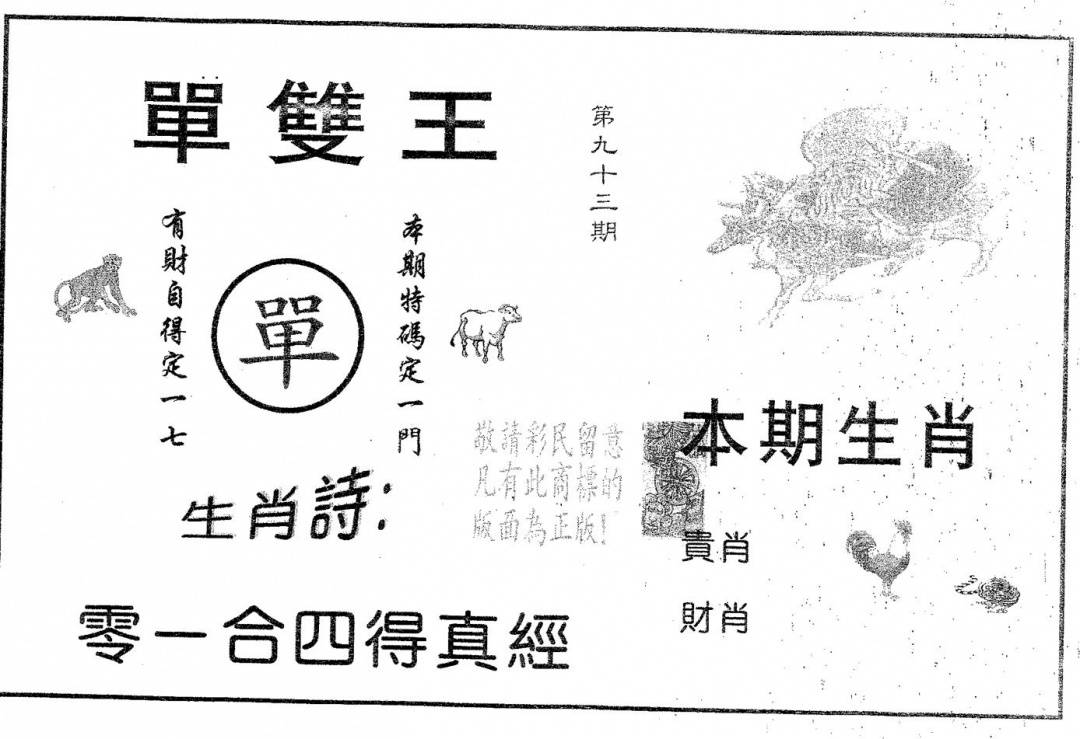 單雙王
第九十三期
本期特碼定一門
單
有財自得定一七
敬請彩民留意
凡有此商標的
版面為正版!
本期生肖
生肖詩:
貴肖
財肖
零一合四得真經